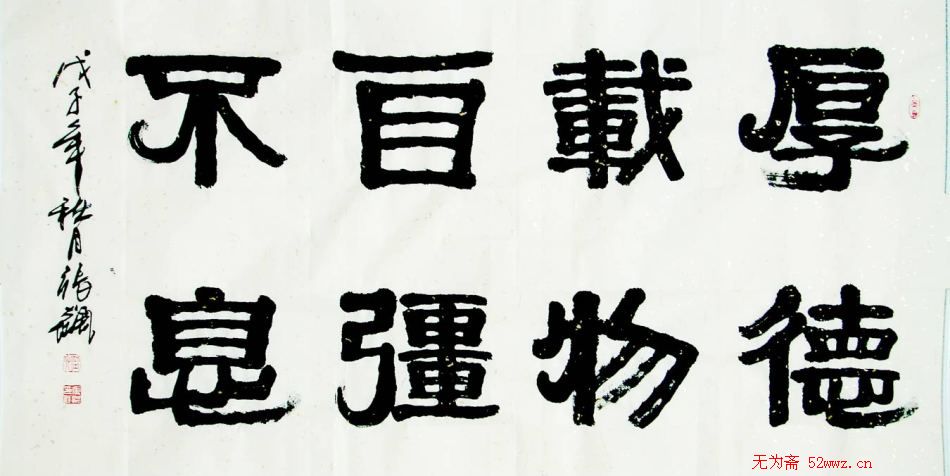 厚德
載物
自彊
不息
戊子年秋月張
无为斋 52wwz.cn